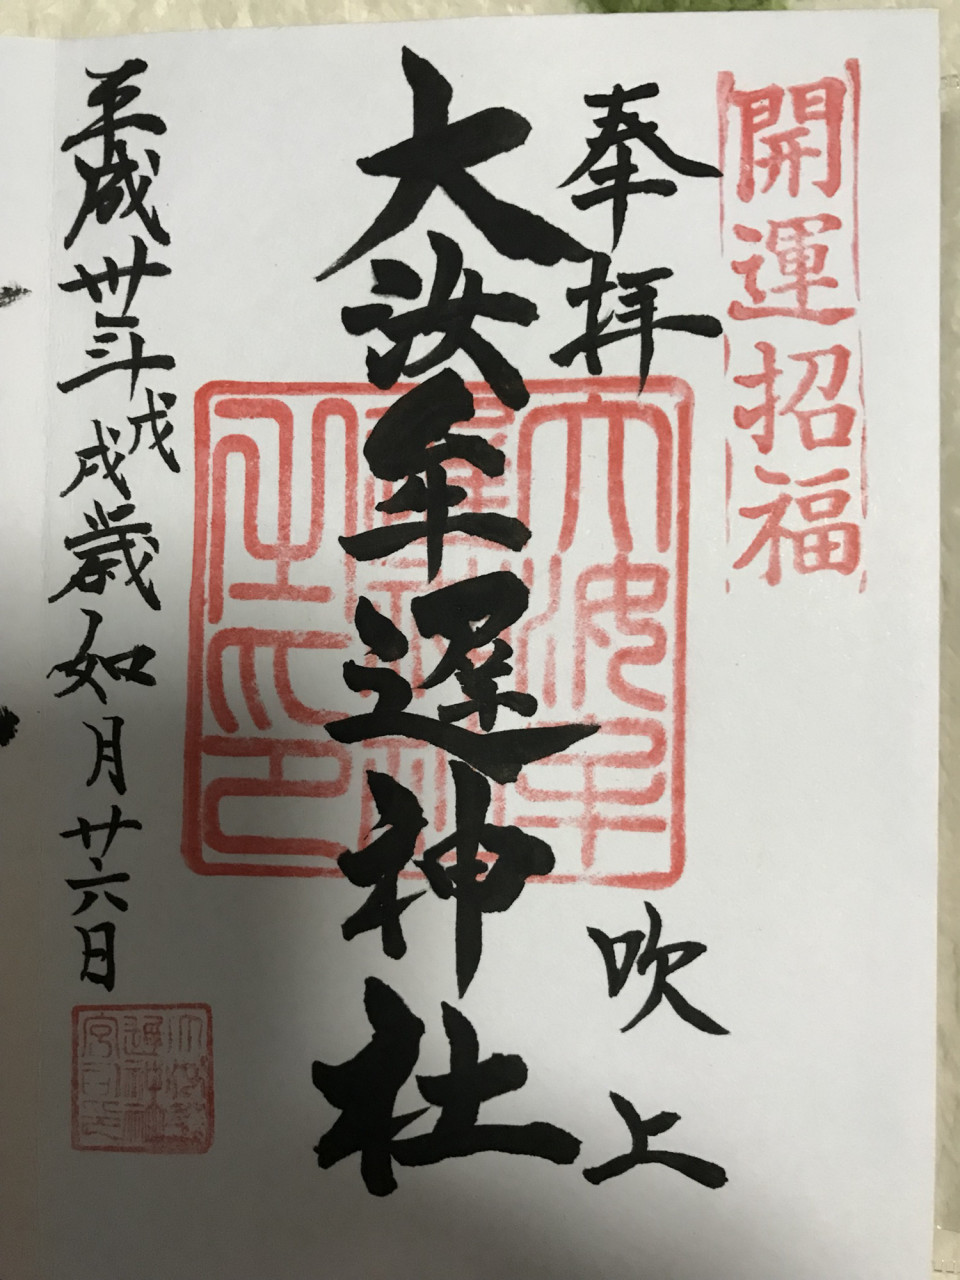 開運招福
奉拝
吹上
大汝牟遅神社
大汝牟遅神社之印
平成卅年戊戌歳如月廿六日
大汝牟遅神社宮司印